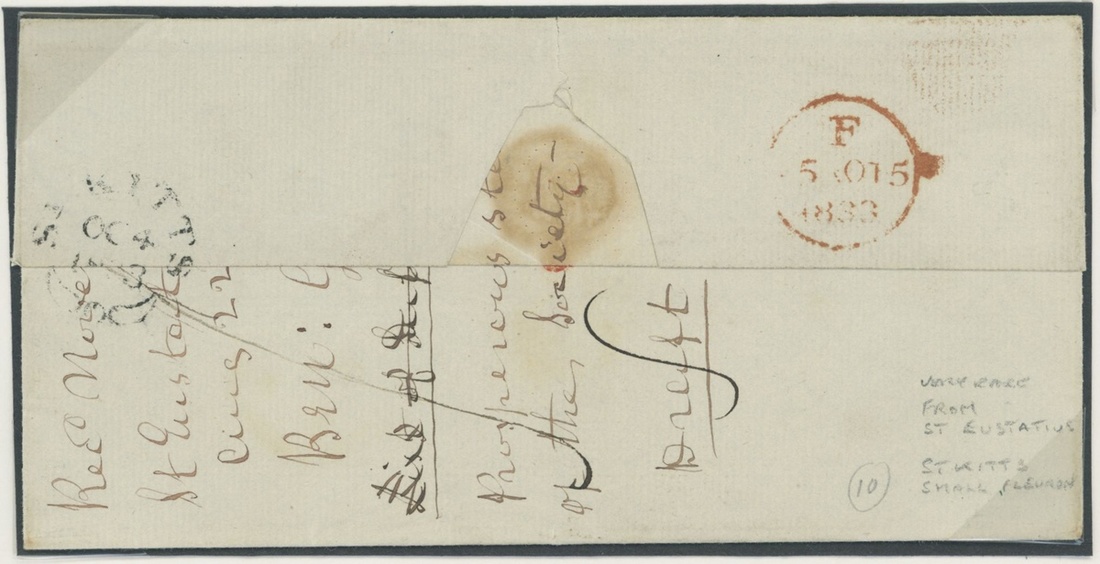 F
5 OT 5
1833
ST KITTS
Recd Nove
St Eustat
Aug 22
Bry: G
List of
Prosperous state
of the Society -
Draft
VERY RARE
FROM
ST EUSTATIUS
ST KITTS
SMALL FLEURON
10